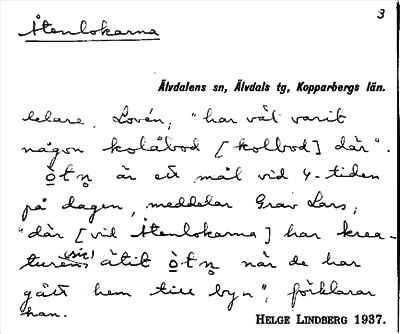 3
Åtenlokarna
Älvdalens sn, Älvdals tg, Kopparbergs län.
delare. Lovén; "har vāl varit
någon kolåbod [kolbod] dār".
är ett mål vid 4-tiden
på dagen, meddelar Grav Lars;
"dār [vid Åtenlokarna] har krea-
turens (sic!) ātit när de har
gått hem till byn", förklarar
han.
HELGE LINDBERG 1937.